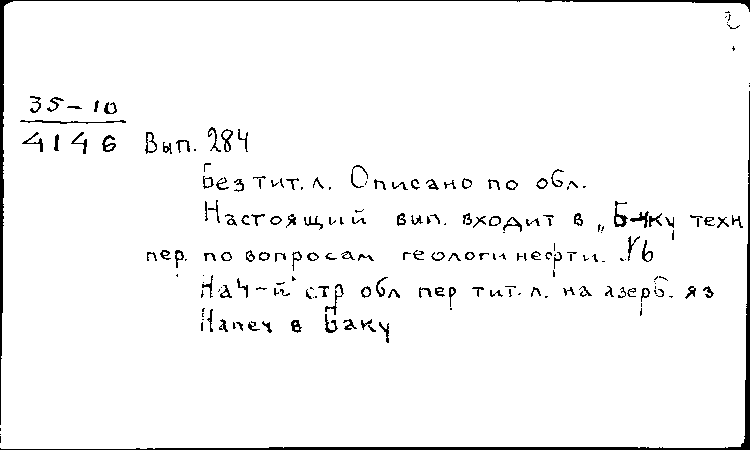 2
35-10
4146 Вып. 284
Без тит. л. Описано по обл.
Настоящий вып. входит в „Б-ку техн
пер. по вопросам геологи нефти. №6
На 4-й стр обл пер тит. л. на азерб. яз
Напеч в Баку